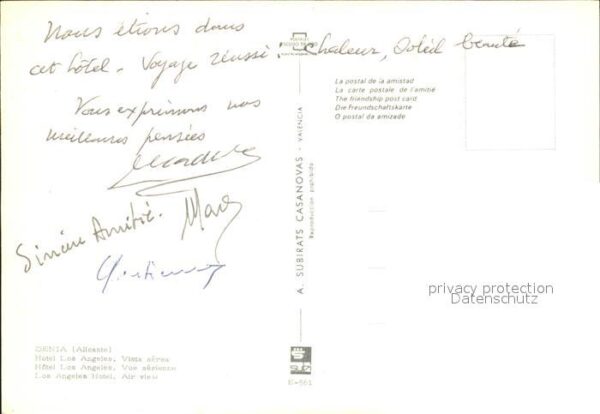 Nous étions dans
cet hôtel. Voyage réussi : chaleur, soleil beauté
Vous exprimons nos
meilleures pensées
Sincère Amitié. Marc
La postal de la amistad
La carte postale de l'amitié
The friendship post card
Die Freundschaftskarte
O postal da amizade
A. SUBIRATS CASANOVAS - VALENCIA
Reproducción prohibida
privacy protection
Datenschutz
DENIA (Alicante)
Hotel Los Angeles, Vista aérea
Hôtel Los Angeles, Vue aérienne
Los Angeles Hotel, Air view
E-561